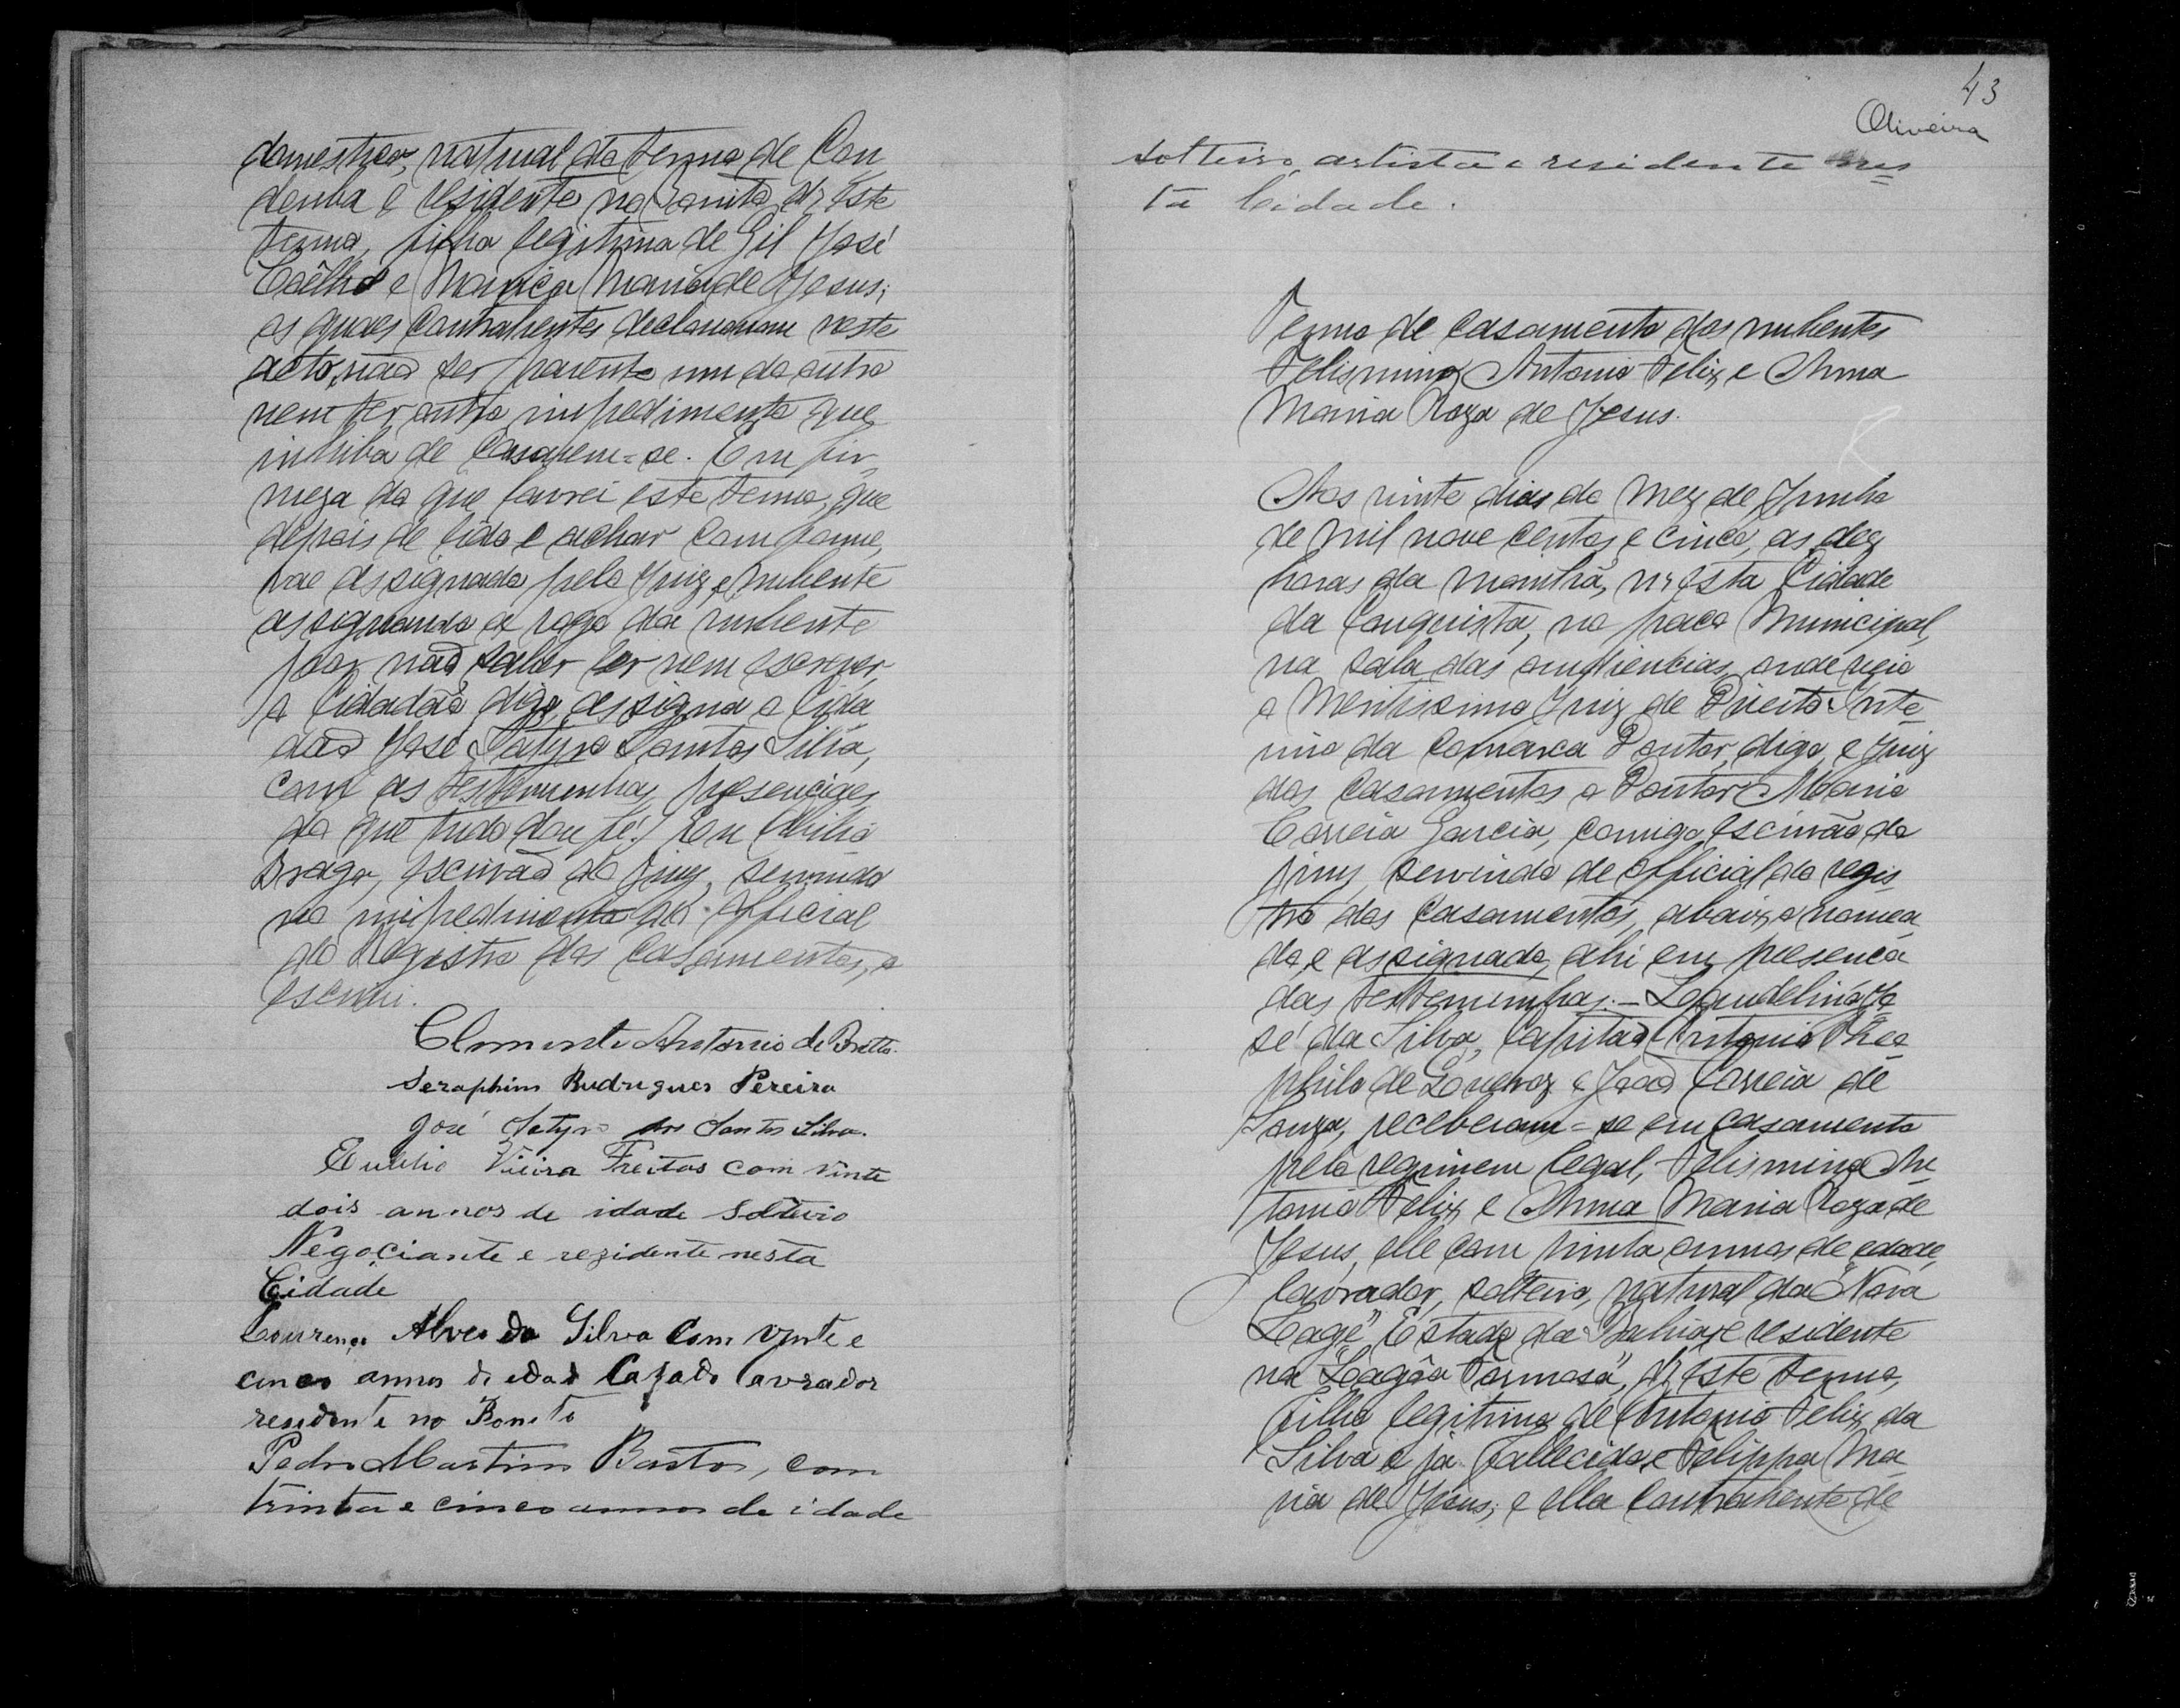 domestica, natural do termo de Con
deuba e residente no Bonito, d'este
termo, filha legitima de Gil José
Coêlho e Manica Maria de Jesus;
os quaes contrahentes declararam neste
acto, não ser parente um do outro
nem ter outro impedimento que
inhiba de casarem=se. Em fir
meza do que lavrei este termo, que
depois de lido e achar conforme,
vae assignado pelo Juiz, e nubente
assignando a rogo da nubente
por não saber ler nem escrever,
o Cidadão, digo, assigna o Cida
dão José Satyro Santos Silva,
com as testemunhas presenciaes
do que tudo dou fé. Eu
Braga, escrivão do jury, servindo
no impedimento do official
do Registro dos Casamentos, o
escrevi.
Clemente Antonio de Britto.
Seraphim Rudrigues Pereira
José Satyro dos Santos Silva.
Vieira Freitas com vinte
dois annos de idade Solteiro
Negociante e rezidente nesta
Cidade
Lourenço Alves da Silva Com vinte e
cinco annos di edad Cazado lavrador
residente no Bonito
Pedro Martins Bastos, com
trinta e cinco annos de idade
43
Oliveira
solteiro, artista e residente nes=
ta Cidade.
Termo de casamento dos nubentes
Felismino Antonio Felix e Anna
Maria Roza de Jesus.
Aos vinte dias do mez de Junho
de mil nove centos e cinco, as dez
horas da manhã, n'esta Cidade
da Conquista, no paço Municipal,
na sala das audiencias, onde
o Meritissimo Juiz de Direito Inte-
rino da Comarca Doutor, digo, e Juiz
dos Casamentos o Doutor Mario
Correia Garcia, comigo, escrivão do
jury, servindo de official do regis
tro dos casamentos, abaixo nomea
do e assignado, ahi em presença
das testemunhas: - Jo
sé da Silva, Capitão Antonio Theo
philo de e João Correia de
Souza, receberam=se em casamento
pelo regimem legal, Felismino An
tonio Felix e Anna Maria Roza de
Jesus, elle com trinta annos de edade,
lavrador, solteiro, natural da "Nova
Lage", Estado da Bahia, e residente
na "Lagôa Formosa", d'este termo,
filho legitimo de Antonio Felix da
Silva e já fallecido, e Felippa Ma
ria de Jesus; e ella contrahente de